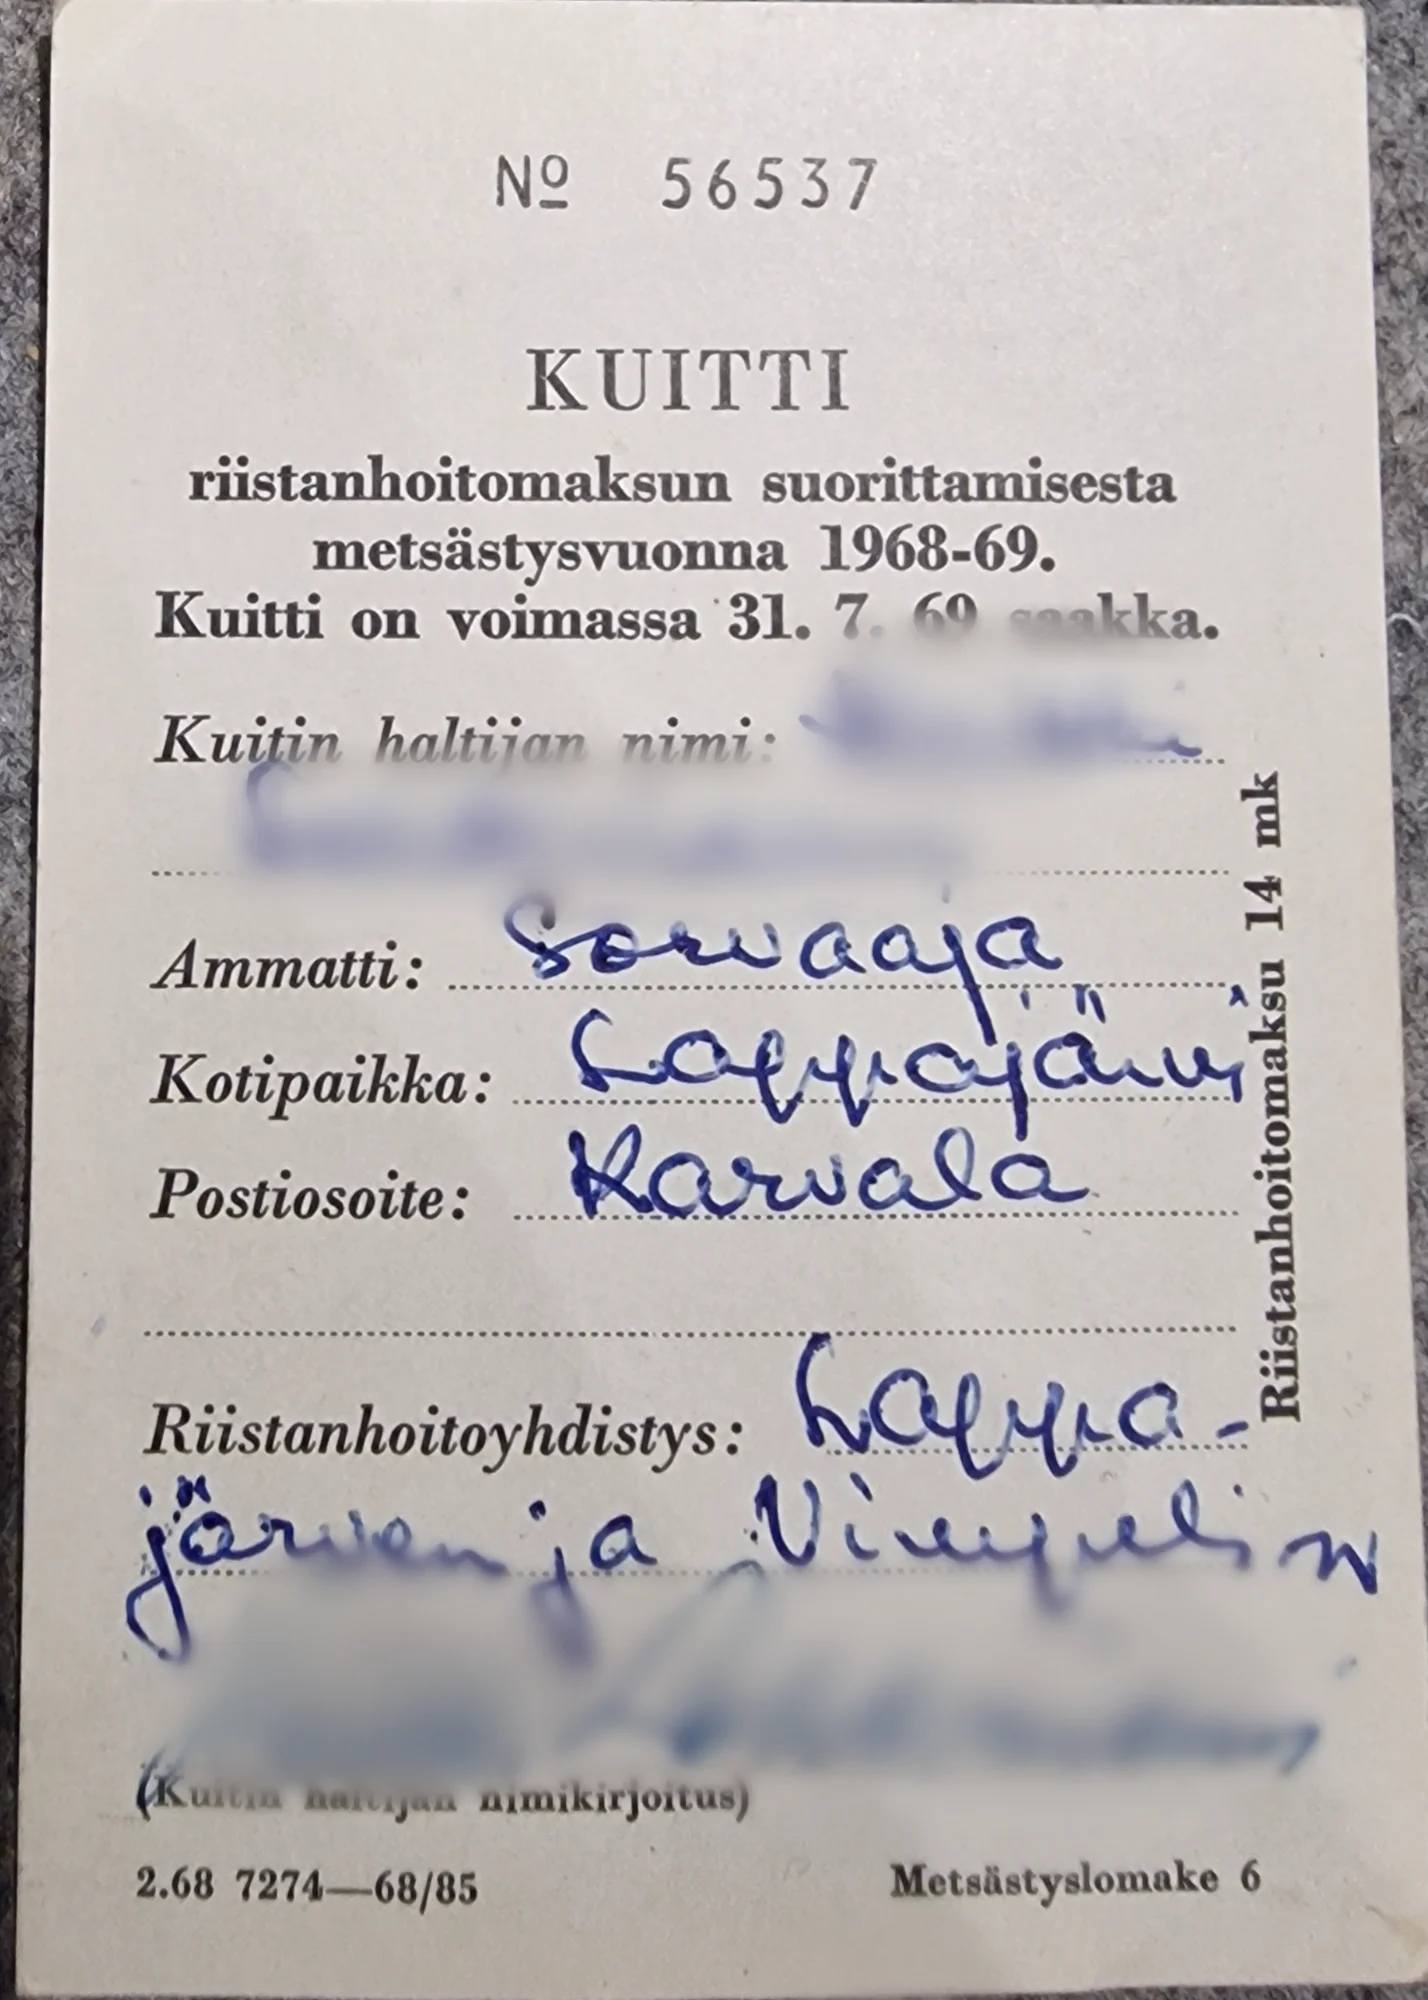 Nº 56537
KUITTI
riistanhoitomaksun suorittamisesta
metsästysvuonna 1968-69.
Kuitti on voimassa 31. 7. 69 saakka.
Kuitin haltijan nimi:
Ammatti: Sorvaaja
Kotipaikka: Lappajärvi
Postiosoite: Karvala
Riistanhoitoyhdistys: Lappa-
järven ja Vimpelin
(Kuitin haltijan nimikirjoitus)
2.68 7274—68/85 Metsästyslomake 6
Riistanhoitomaksu 14 mk